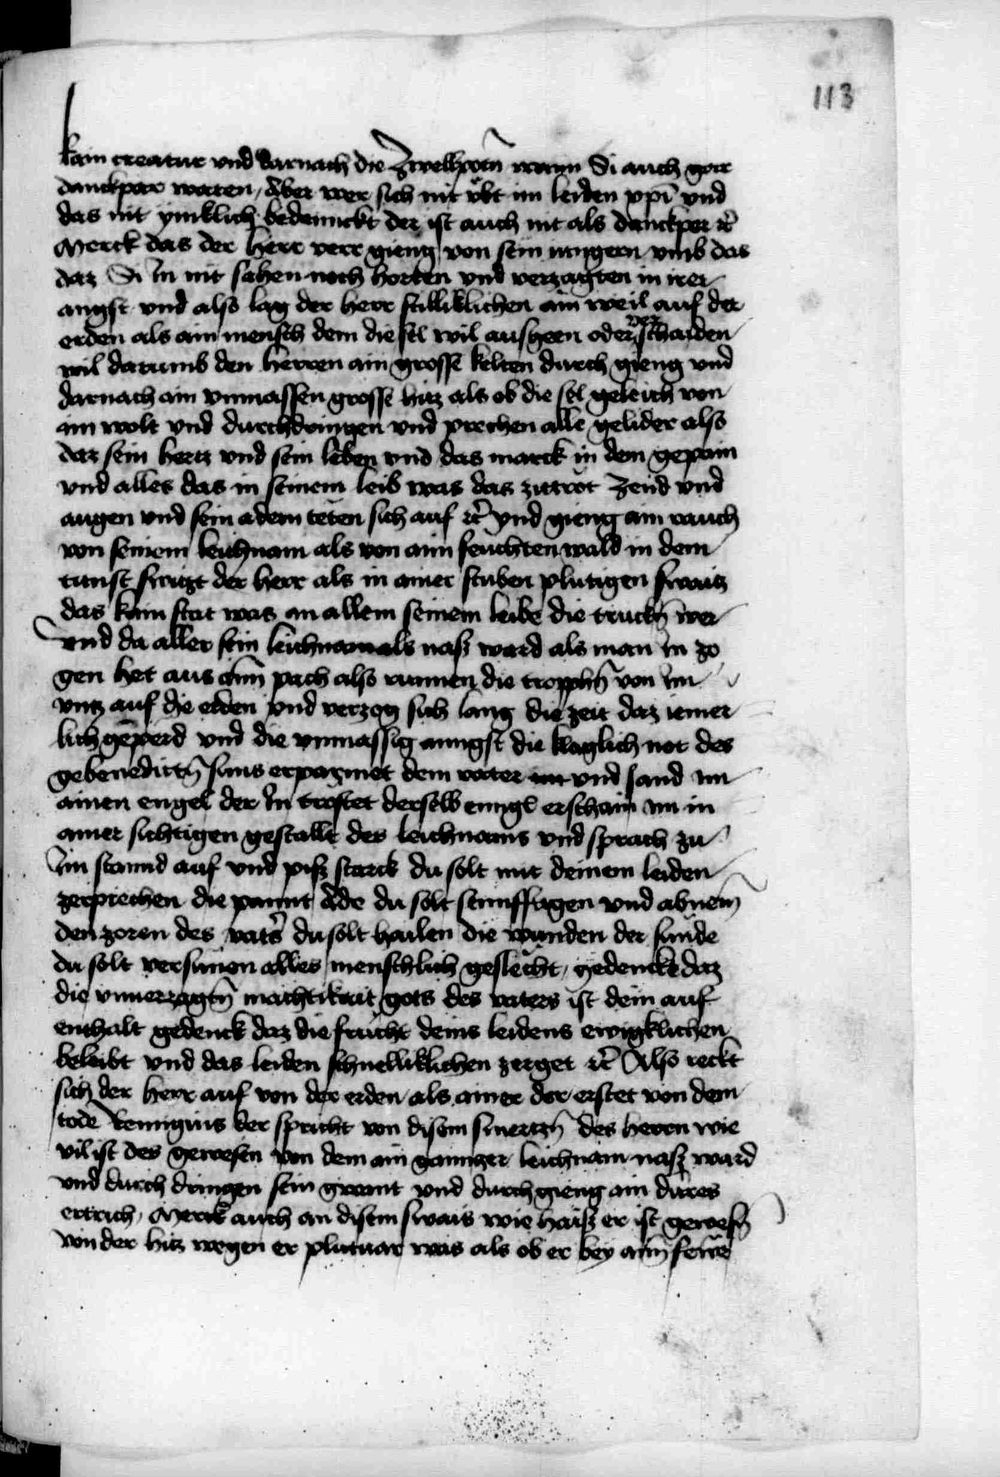 113
kain creatur und darnach die Zwelfpotn̄ wann Si auch gotz
danckper waren / Aber wer sich nit übt im leiden xpī und
das nit ynniklich bedennckt der ist auch nit als danckper ꝛc̄
Merck das der herr verr gieng von sein iungern umb das
daz Si In nit sahen noch horten und verzagten in irer
angst und also lag der herr stilliklichen ain weil auf der
erden als ain mensch dem die sel wil ausgeen oder verschaiden
wil darumb den herren ain grosse kelten durch gieng und
darnach ain unmassen grosse hitz als ob die sel geleich von
im wolt und durchdringen und prechen alle gelider also
daz sein hertz und sein leben und das marck in dem gepain
und alles das in seinem leib was das zitrot Zend und
augen und sein adern teten sich auf ꝛc̄ und gieng ain rauch
von seinem leichnam als von aim feuchten wald in dem
tunst switzt der herr als in ainer stuben plutigen swaitz
das kain stat was an allem seinem leibe die truckn̄ wer
und da aller sein leichnam als nasz ward als man In zo
gen het aus aim pach also runnen die tropphn̄ von im
untz auf die erden und verzog sich lang die zeit daz iemer
lich geperd und die unmassig anngst die klaglich not des
gebenedictn̄ suns erparmet dem vater und sand im
ainen engel der In trostet derselb enngl erschain im in
ainer sichtigen gestallt des leichnams und sprach zu
im stannd auf und pisz starck du solt mit deinem leiden
zerprechen die pannt Ade du solt sennfftigen und abnem̄
den zoren des vatrs̄ du solt hailen die wunden der sunde
du solt versunen alles menschlich geslecht / gedenckt daz
die unuerzagtn̄ machtikait gots des vaters ist dein auf
enthalt gedenck daz die frucht deins leidens ewigklichen
beleibt und das leiden schnelliklichen zerget ꝛc̄ Also reckt
sich der herr auf von der erden als ainer der erstet von dem
tode Remigius der spricht von disem smertzn̄ des herrn wie
vil ist des gewesen von dem ain gannczer leichnam nasz ward
und durch dringen sein gwant und durchgieng ain dürres
ertrich / Merck auch an disem swais wie haisz er ist gewesn̄
von der hitz wegen er plutuar was als ob er bey aim feure